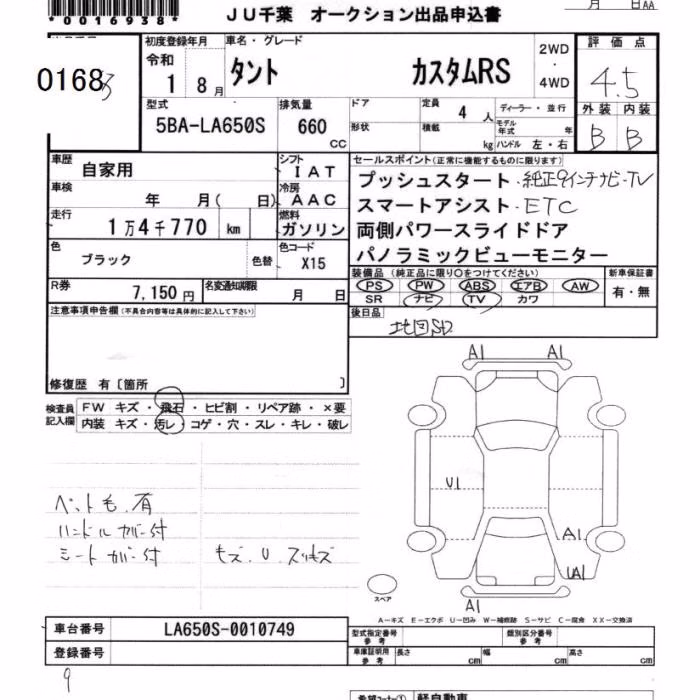 *0016938*
JU千葉 オークション出品申込書
月 日 AA
0168
初度登録年月
令和
1 8月
車名・グレード
タント カスタムRS
2WD
・
4WD
評価点
4.5
外装 内装
B B
型式
5BA-LA650S
排気量
660
CC
ドア
形状
定員
4 人
積載
kg
ディーラー・並行
モデル年式 年
ハンドル 左・右
車歴
自家用
シフト
IAT
車検
年 月( 日)
冷房
AAC
走行
1万4千770 km
燃料
ガソリン
色
ブラック
色替
色コード
X15
R券
7,150円
名変通知期限
月 日
セールスポイント(正常に機能するものに限ります)
プッシュスタート・純正9インチナビ・TV
スマートアシスト・ETC
両側パワースライドドア
パノラミックビューモニター
装備品 (純正品に限り○をつけてください)
PS PW ABS エアB AW
SR ナビ TV カワ
新車保証書
有・無
後日品
地図SD
注意事項申告欄(不具合内容等は具体的に記入して下さい)
修復歴 有〔箇所 〕
検査員
記入欄
FW キズ・飛石・ヒビ割・リペア跡・×要
内装 キズ・汚レ・コゲ・穴・スレ・キレ・破レ
ペット毛有
ハンドルカバー付
シートカバー付
キズ.U.スリキズ
A1 A1
U1
A1
UA1
A1
スペア
A－キズ E－エクボ U－凹み W－補修跡 S－サビ C－腐食 XX－交換済
車台番号
LA650S-0010749
登録番号
型式指定番号
参考
類別区分番号
参考
車庫証明用
参考
長さ cm
幅 cm
高さ cm
9
希望コーナー①
軽自動車